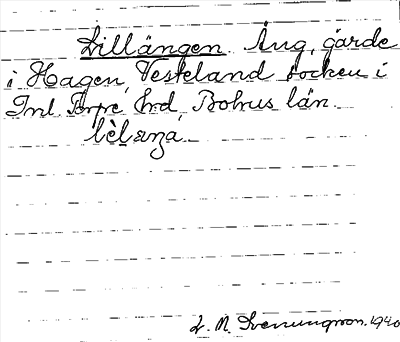 Lillängen Äng, gärde
i Hagen, Vesteland socken i
Inl. Torpe Hrd, Bohus län.
lèlæŋa
L. M. Svenungsson. 1940